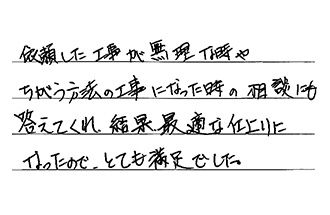 依頼した工事が無理な時や
ちがう方法の工事になった時の相談にも
答えてくれ結果最適な仕上りに
なったので、とても満足でした。